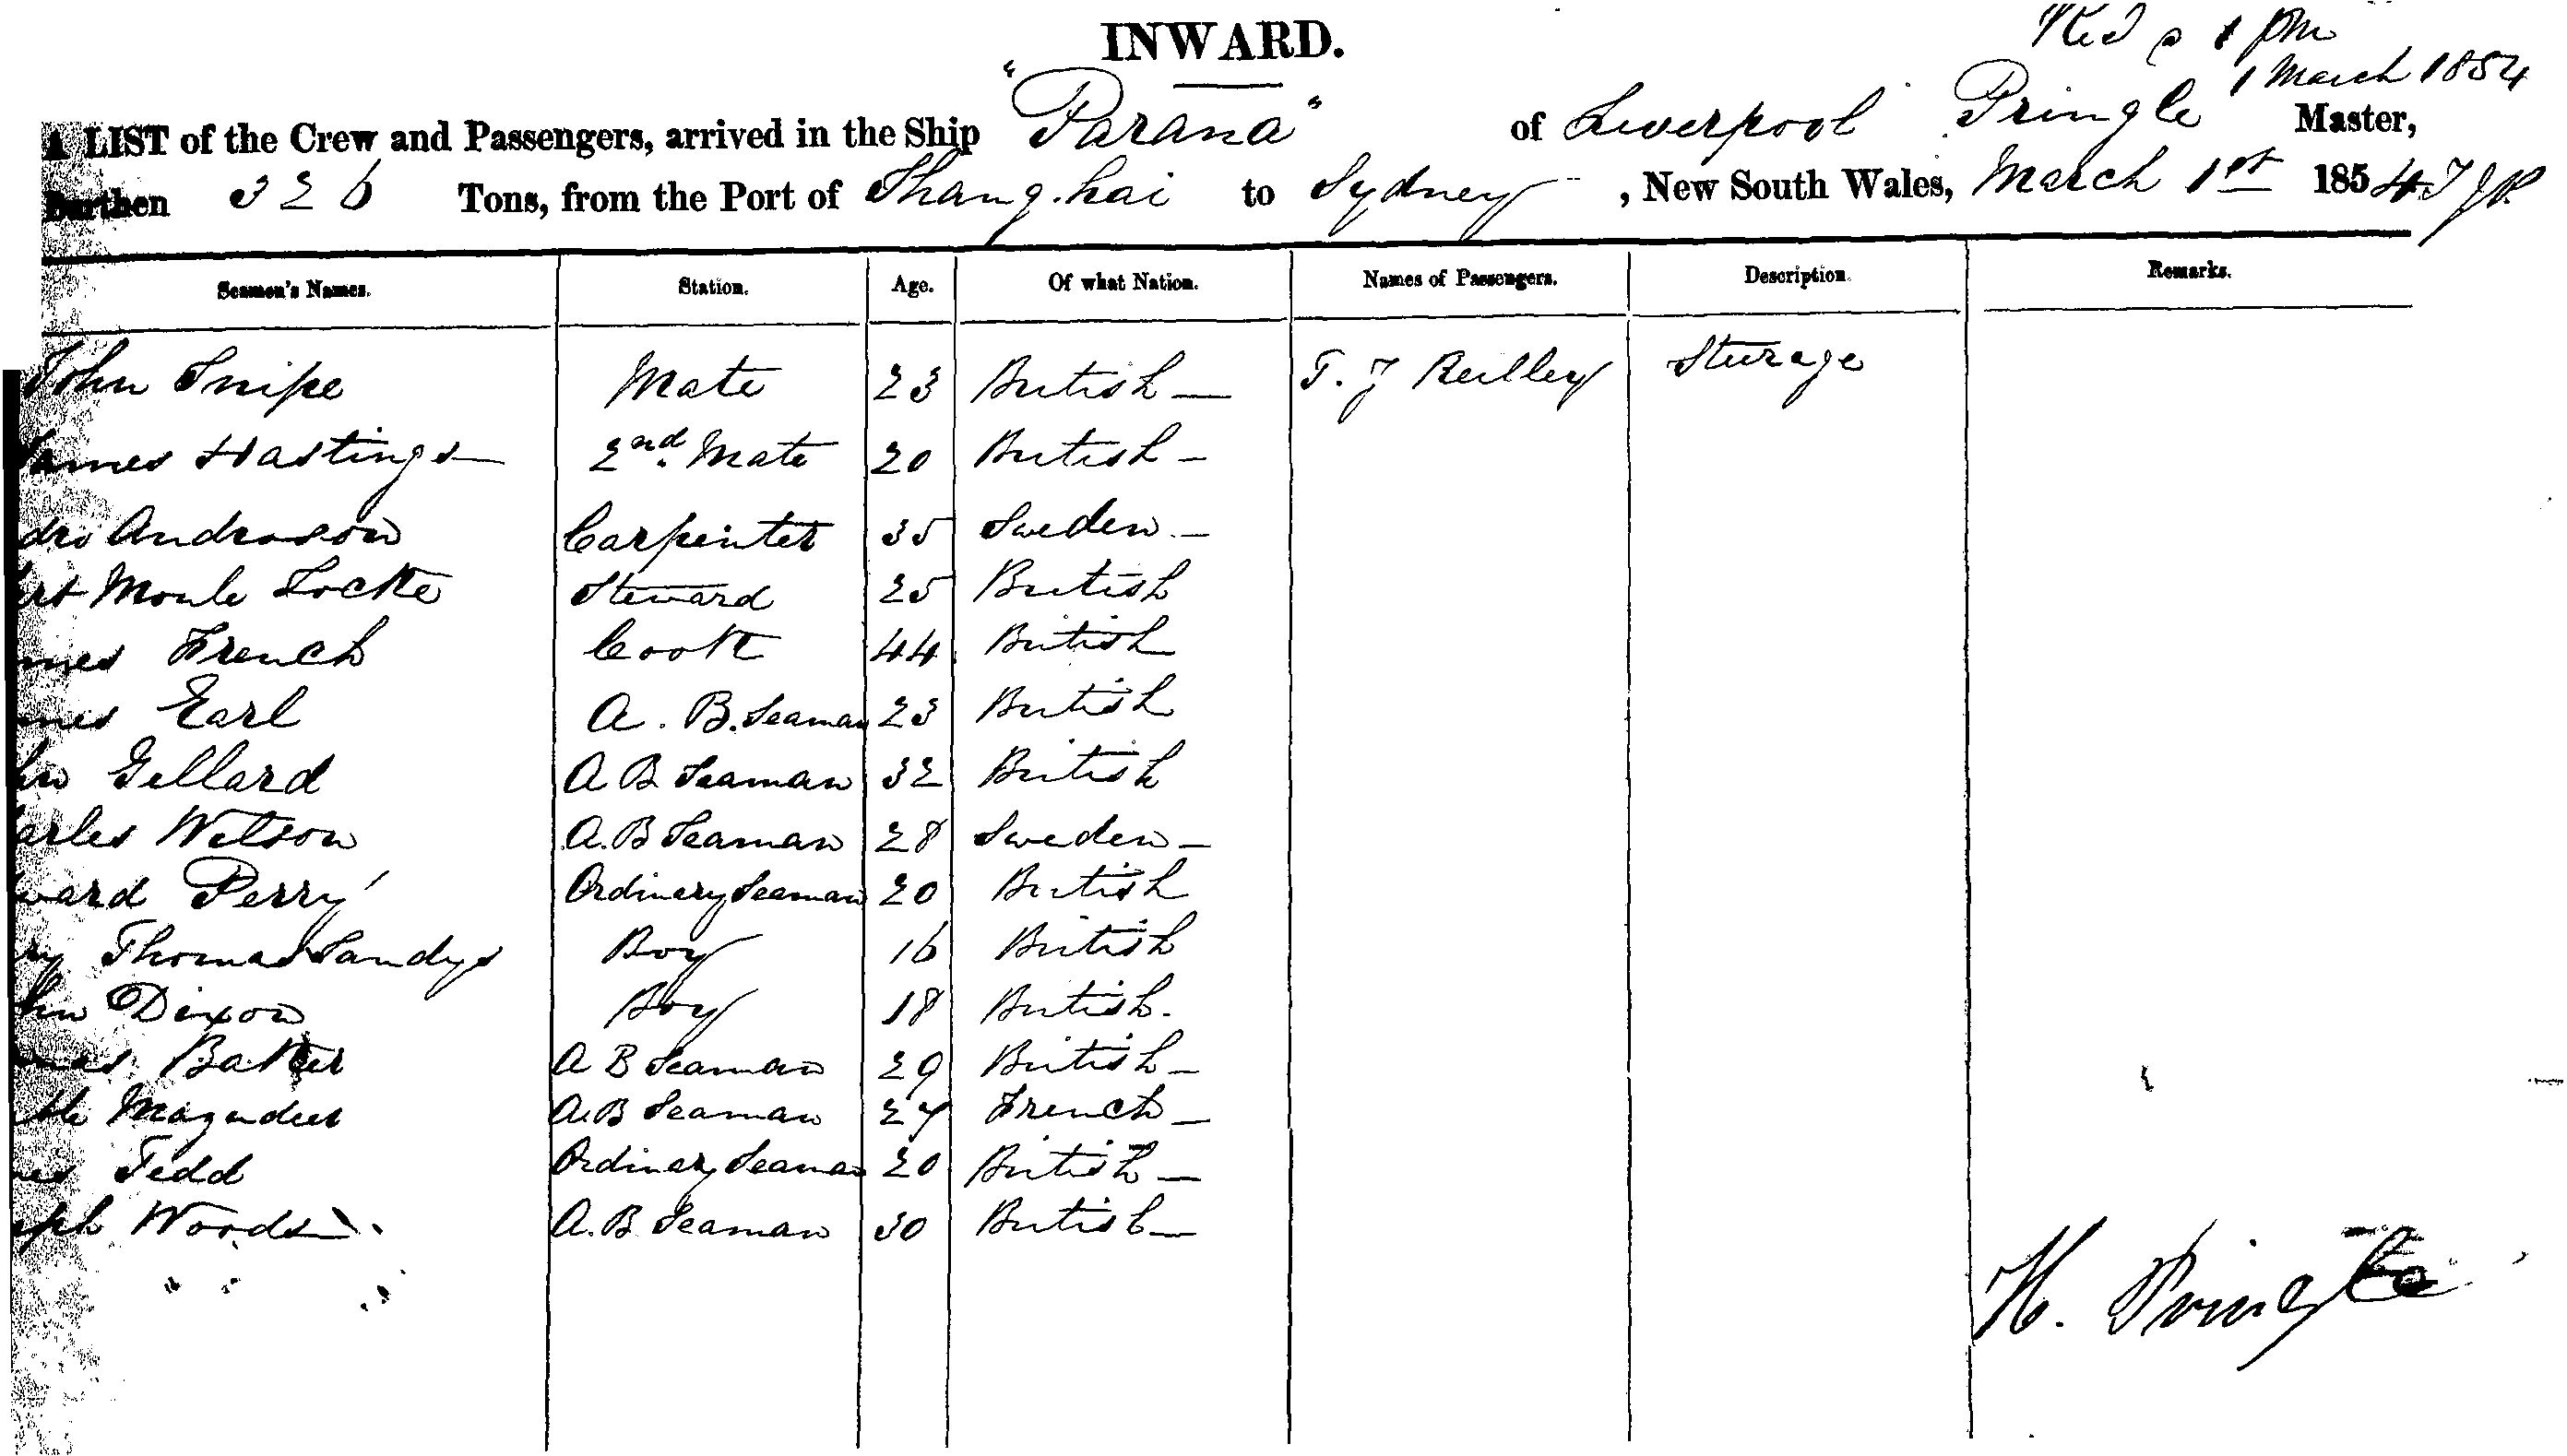 INWARD.
1 pm
1 March 1854
A LIST of the Crew and Passengers, arrived in the Ship "Parana" of Liverpool Pringle Master,
Burthen 326 Tons, from the Port of Shanghai to Sydney, New South Wales, March 1st 1854
Seamen's Names. Station. Age. Of what Nation. Names of Passengers. Description. Remarks.
John Snipe Mate 23 British — T. J Reilley Steerage
James Hastings 2nd. Mate 20 British —
dro Androson Carpenter 35 Sweden —
ert Moule Locke Steward 25 British
mes French Cook 44 British
mes Earl A. B. Seaman 23 British
hn Gellard A B Seaman 32 British
arles Wilson A. B Seaman 28 Sweden —
ward Perry Ordinary Seaman 20 British
ry Thomas Sandys Boy 16 British
hn Dixon Boy 18 British.
mas Baker A B Seaman 29 British —
A. B Seaman French —
mes Tedd Ordinary Seaman 20 British —
seph Woods A. B Seaman 30 British —
H. Pringle